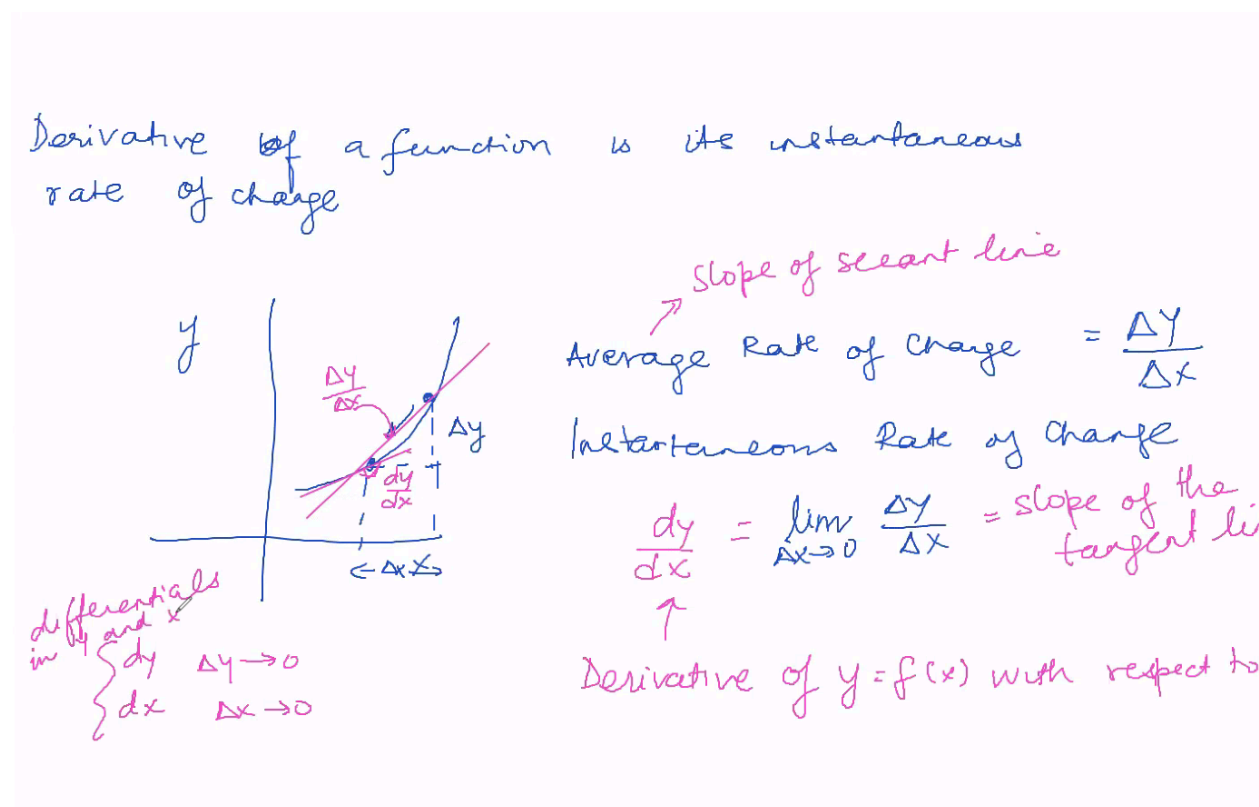 Derivative of a function is its instantaneous
rate of change
Slope of secant line
Average Rate of Change = Δy/Δx
Instantaneous Rate of Change
dy/dx = lim Δx→0 Δy/Δx = slope of the
tangent li
Derivative of y = f(x) with respect to
y
Δy/Δx
Δy
dy/dx
← Δx → x
differentials
in y and x
dy Δy → 0
dx Δx → 0